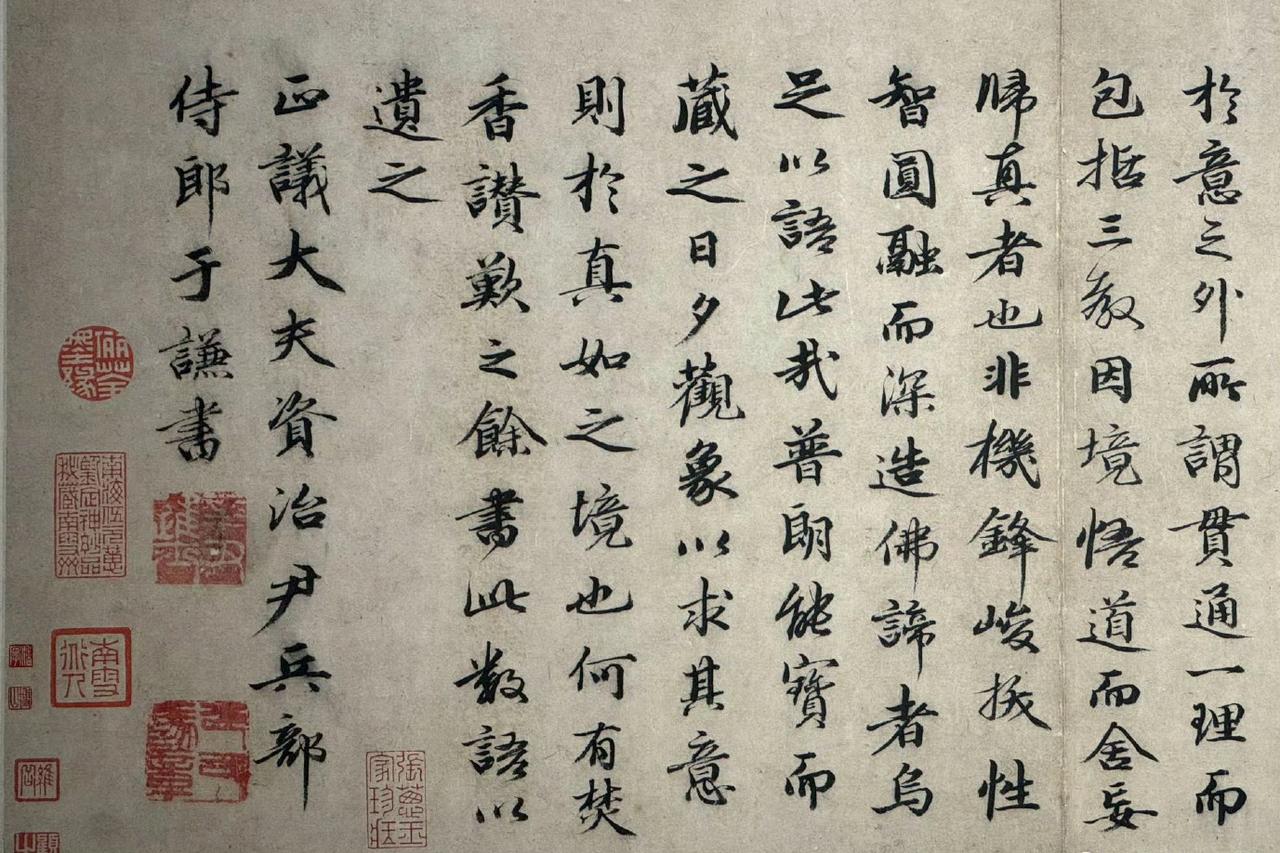 於意之外所謂貫通一理而
包括三教因境悟道而舍妄
歸真者也非機鋒峻拔性
智圓融而深造佛諦者烏
足以語此哉普朗能寶而
藏之日夕觀象以求其意
則於真如之境也何有焚
香讚歎之餘書此數語以
遺之
正議大夫資治尹兵部
侍郎于謙書
張蔥玉
家珍藏
南雪